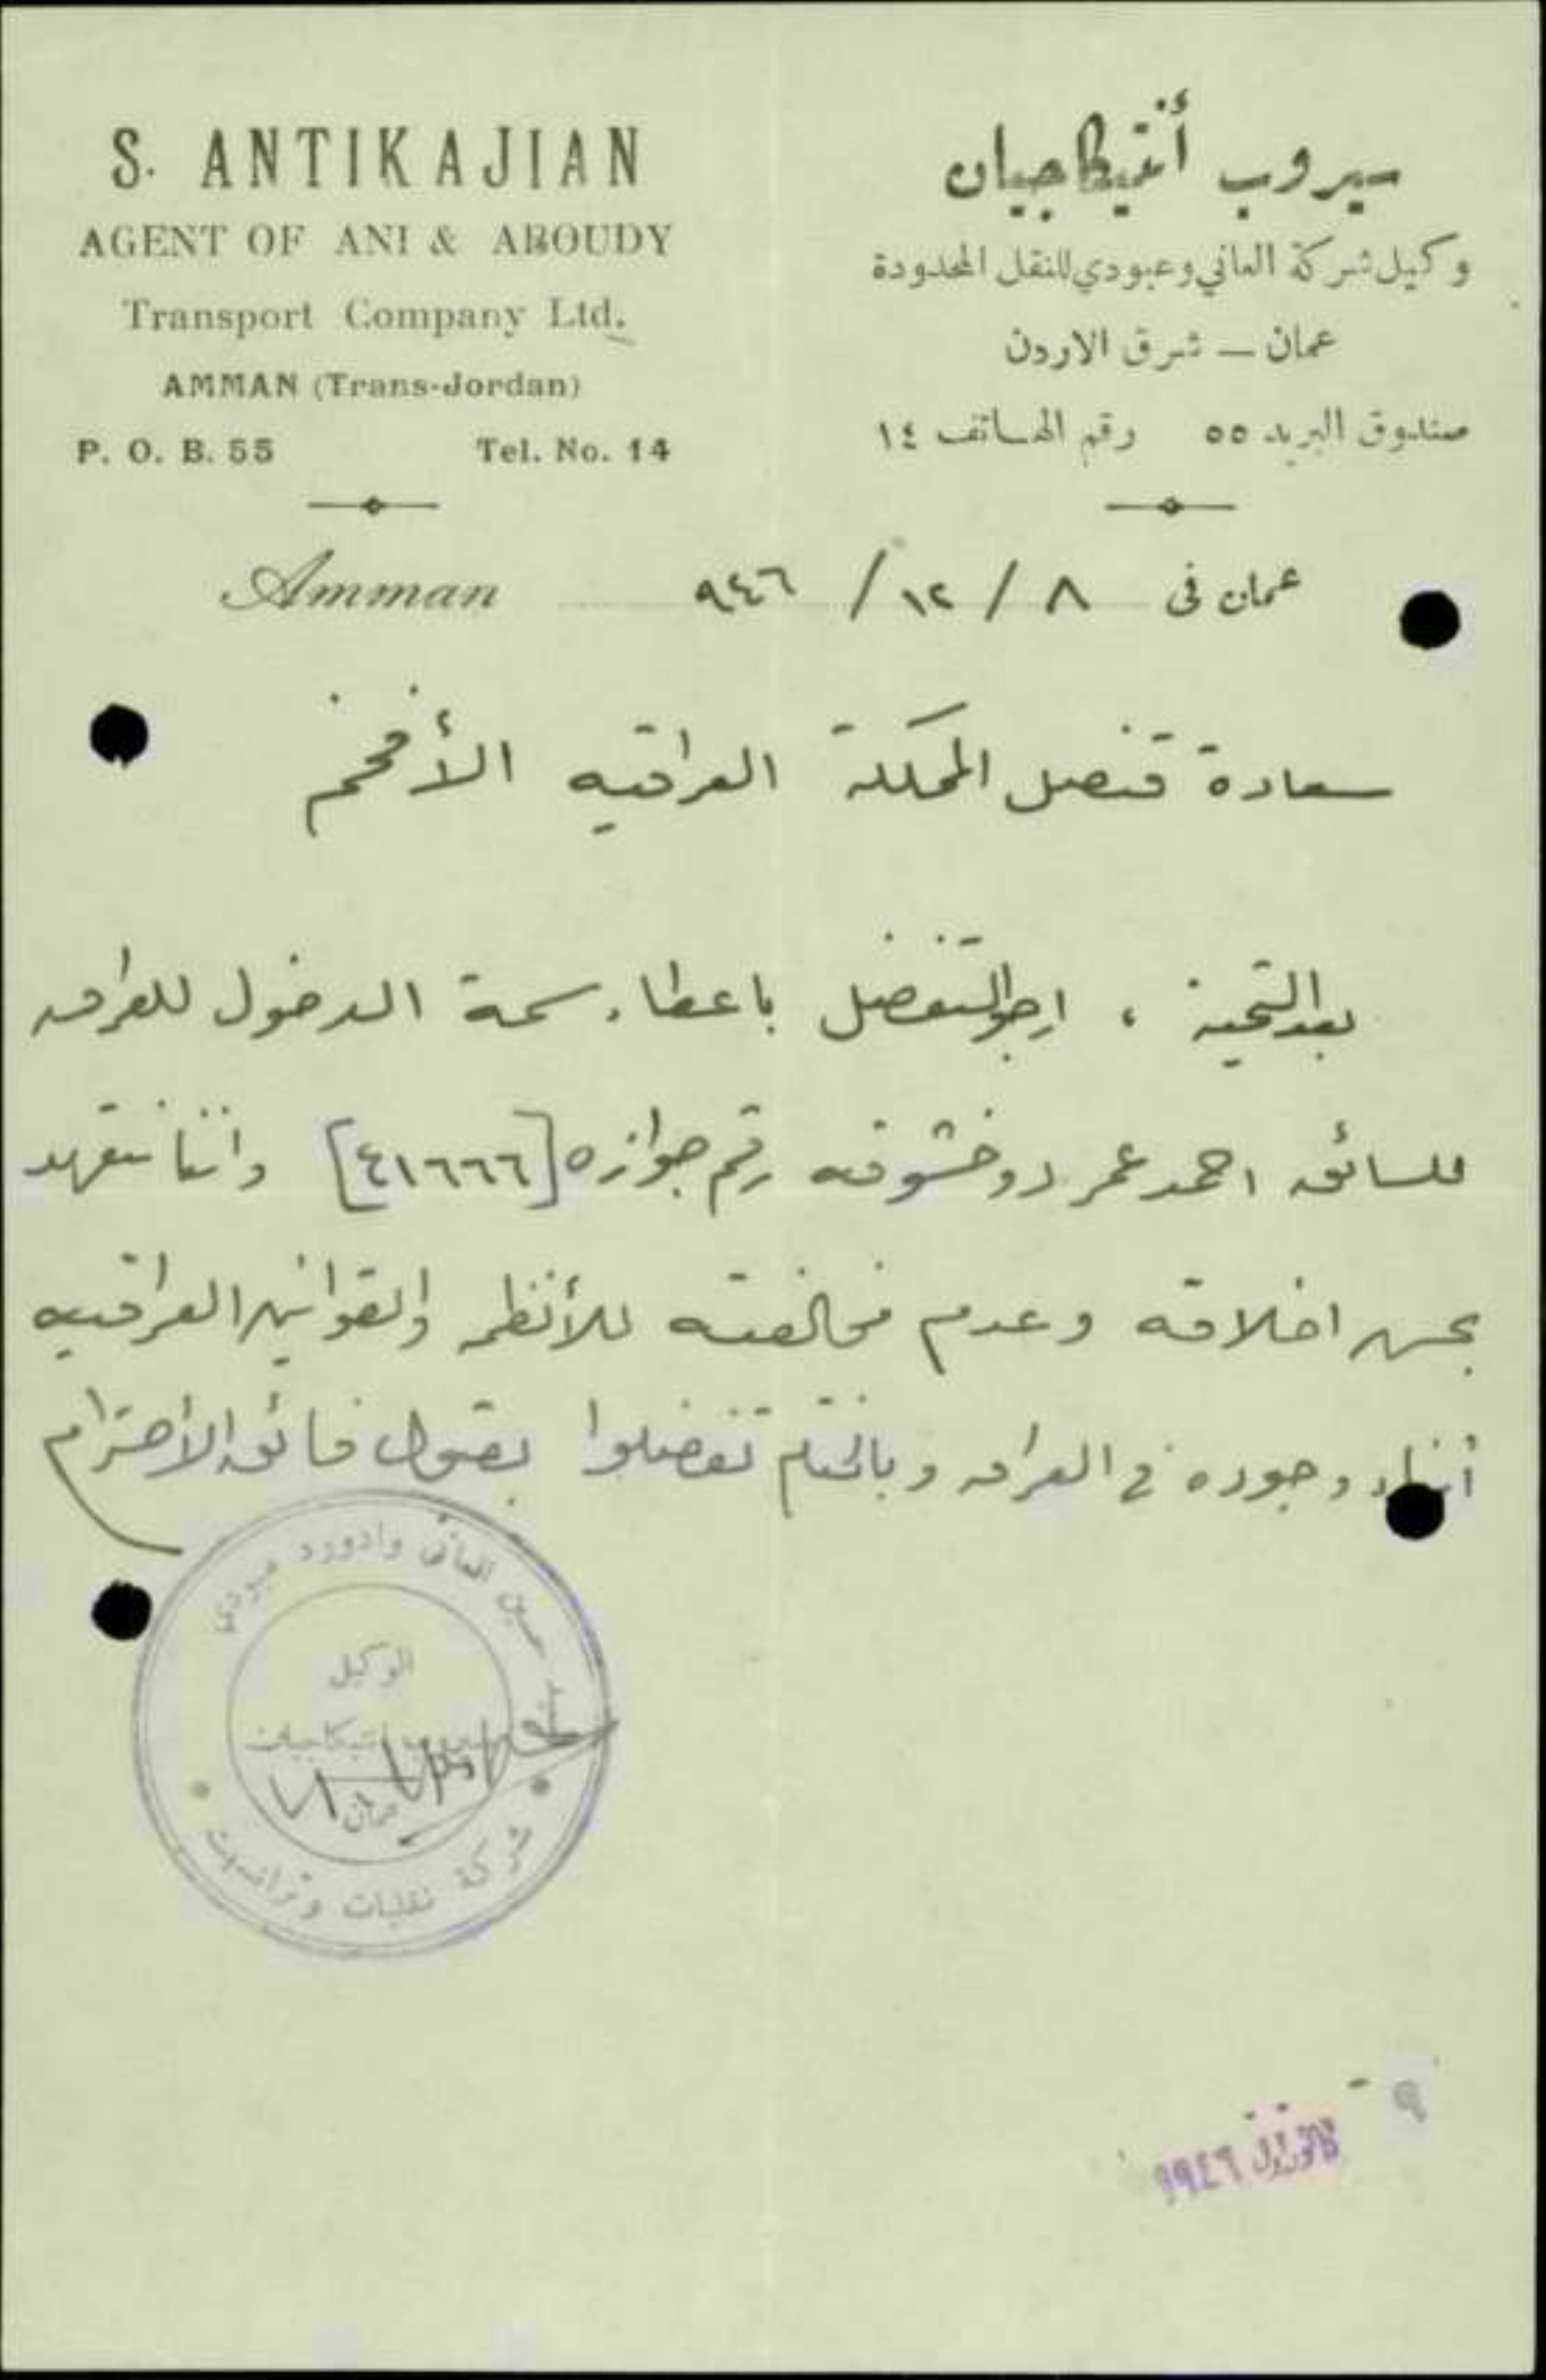 S. ANTIKAJIAN
AGENT OF ANI & ABOUDY
Transport Company Ltd.
AMMAN (Trans-Jordan)
P. O. B. 55 Tel. No. 14
سيروب أنتيكاجيان
وكيل شركة العاني وعبودي للنقل المحدودة
عمان — شرق الاردن
صندوق البريد ٥٥ رقم الهاتف ١٤
Amman
عمان فى ٨ / ١٢ / ٩٤٦
سعادة قنصل المملكة العراقيه الأفخم
بعد التحية ، ارجو التفضل باعطاء سمة الدخول للعراق
للسائق احمد عمر دوخشوقه رقم جوازه [٤١٦٦٦] واننا نتعهد
بحسن اخلاقه وعدم مخالفته للأنظمه والقوانين العراقيه
أثناء وجوده في العراق وبالختام تفضلوا بقبول فائق الأحترام
حسين العاني وادورد عبودي
الوكيل
سيروب انتيكاجيان
عمان
شركة نقليات وترانسيت
٩ -
كانون اول ١٩٤٦